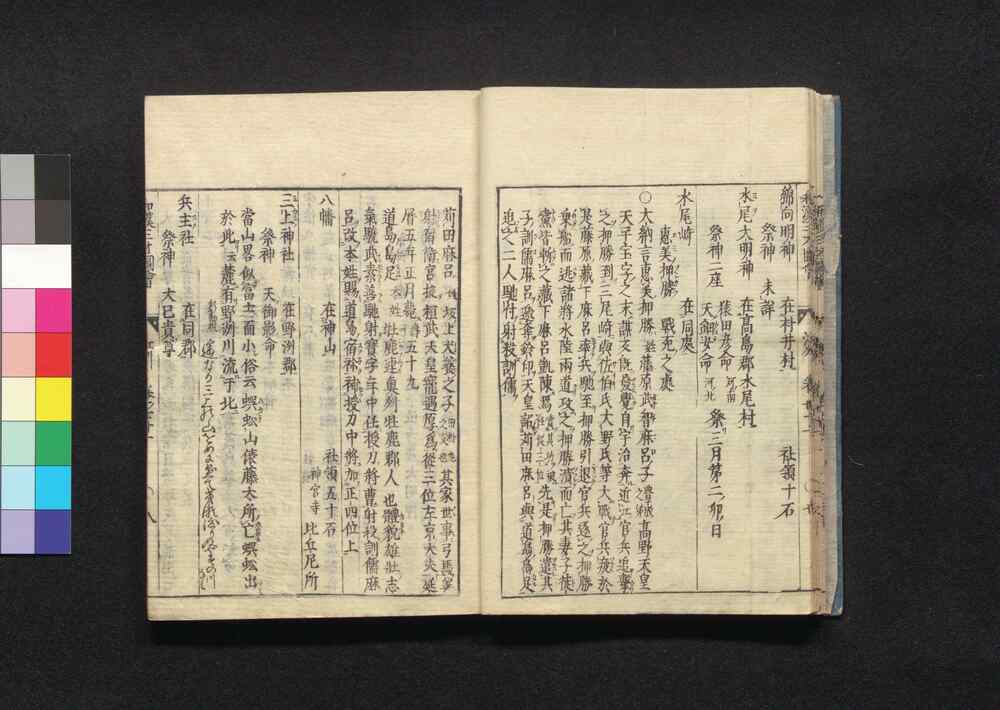 錦向明神 在村井村 社領十石
祭神 未詳
水尾大明神 在高島郡水尾村
祭神二座 猿田彦命 河南 天鈿女命 河北 祭三月第二卯日
水尾崎 在同處
惠美押勝 戰死之處
○大納言惠美押勝 姓藤原武智麻呂子 高野天皇
天子玉字之未謀反既發覺自宇治奔近江官兵追擊
之押勝到三尾崎與佐伯氏大野氏等大戰官兵疲於
是藤原藏下麻呂率兵馳至押勝引退官兵逐之押勝
乗船而逃諸將水陸兩道攻之押勝潰而亡其妻子徒
黨皆斬之藏下麻呂凱陳焉 先是押勝遣其
子訓儒麻呂邀奪鈴印天皇詔苅田麻呂與道島島足
追之二人馳付射殺訓儒
苅田麻呂 坂上犬養之子 其家世事弓馬善
射宿衛宮掖桓武天皇寵遇厚爲從三位左京大夫延
暦五年正月薨 五十九
道島島足 本姓牡鹿連奥列牡鹿郡人也體貌雄壯志
氣驍武素善馳射寳字年中任授刀將曹射殺訓儒麻
呂改本姓賜道島宿祢補授刀中將加正四位上
八幡 在神山 社領五十石
神宮寺 比丘尼所
三上神社 在野洲郡
祭神 天御影命
當山畧似冨士而小俗云蜈蚣山俵藤太所亡蜈蚣出
於此云麓有野洲川流于北
兵主社 在同郡
祭神 大巳貴尊